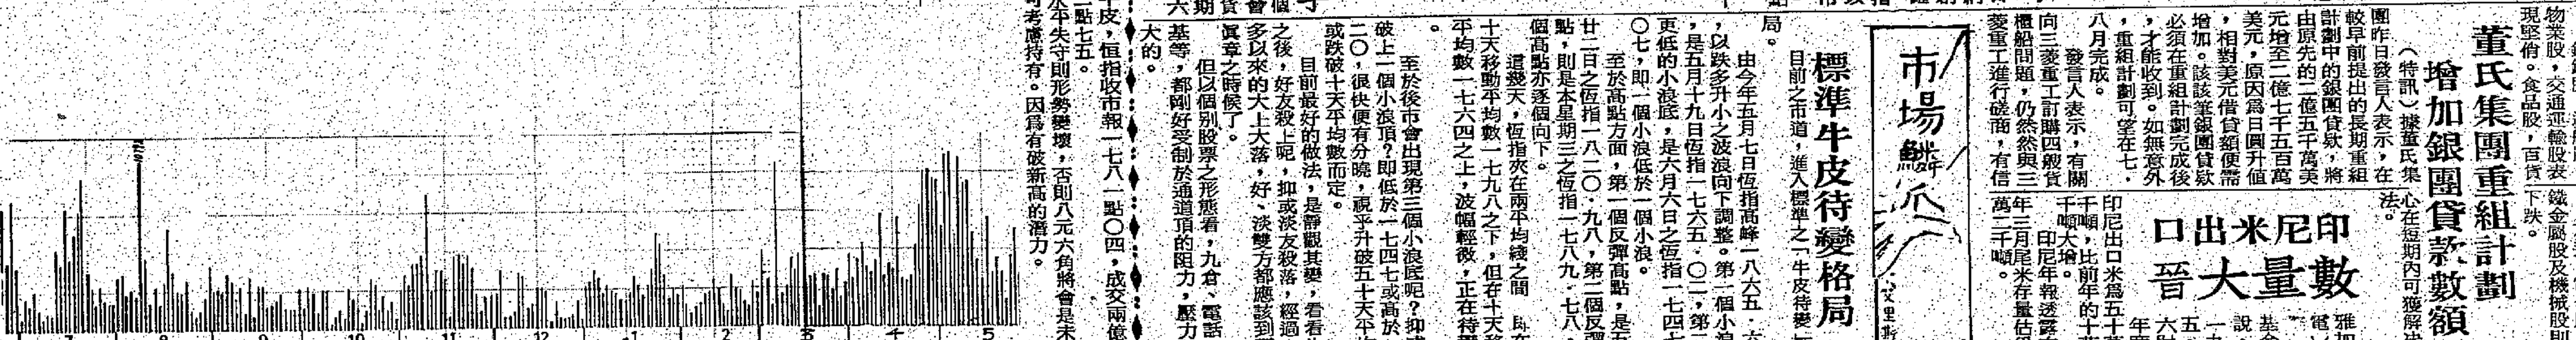 物業股，交通運輸股表
現堅俏。食品股，百貨
鐵金屬股及機械股則
下跌。
董氏集團重組計劃
增加銀團貸款數額
（特訊）據董氏集
團昨日發言人表示，在
較早前提出的長期重組
計劃中的銀團貸款，將
由原先的二億五千萬美
元增至二億七千五百萬
美元，原因為日圓升值
，相對美元借貸額便需
增加。該筆銀團貸款
必須在重組計劃完成後
，才能收到。如無意外
，重組計劃可望在七．
八月完成。
發言人表示，有關
向三菱重工訂購四艘貨
櫃船問題，仍然與三
菱重工進行磋商，有信
心在短期內可獲解決
法。
印尼米出口
數量大晉
印尼出口米為五十萬
千噸，比前年的十萬
千噸大增。
印尼年報透露在
年三月尾米存量估
萬二千噸。
市場鱗爪
艾里斯
標準牛皮待變格局
目前之市道，進入標準之「牛皮待變」
局。
由今年五月七日恆指高峰一八六五．六
，以跌多升小之波浪向下調整。第一個小浪
，是五月十九日恆指一七六五．〇一，第二
更低的小浪底，是六月六日之恆指一七四七
〇七，即一個小浪低於一個小浪。
至於高點方面，第一個反彈高點，是五
廿二日之恆指一八二〇．九八，第二個反彈
點，則是本星期三之恆指一七八九．七八，
個高點亦逐個向下。
這幾天，恆指夾在兩平均綫之間
十天移動平均數一七九八之下，但在十天移
平均數一七六四之上，波幅輕微，正在待變
。
至於後市會出現第三個小浪底呢？抑或
破上一個小浪頂？即低於一七四七或高於
二〇，很快便有分曉，視乎升破五十天平均
或跌破十天平均數而定。
目前最好的做法，是靜觀其變，看看牛
之後，好友殺上呢，抑或淡友殺落，經過
多以來的大上大落，好、淡雙方都應該到
真章之時候了。
但以個別股票之形態看，九倉、電話
基等，都剛好受制於通道頂的阻力，壓力
大的。
皮，恒指收市報一七八一點〇四，成交兩億
點七五。
水平失守則形勢變壞，否則八元六角將會是未
可考慮持有。因為有破新高的潛力。
7 8 9 10 11 12 1 2 3 4 5